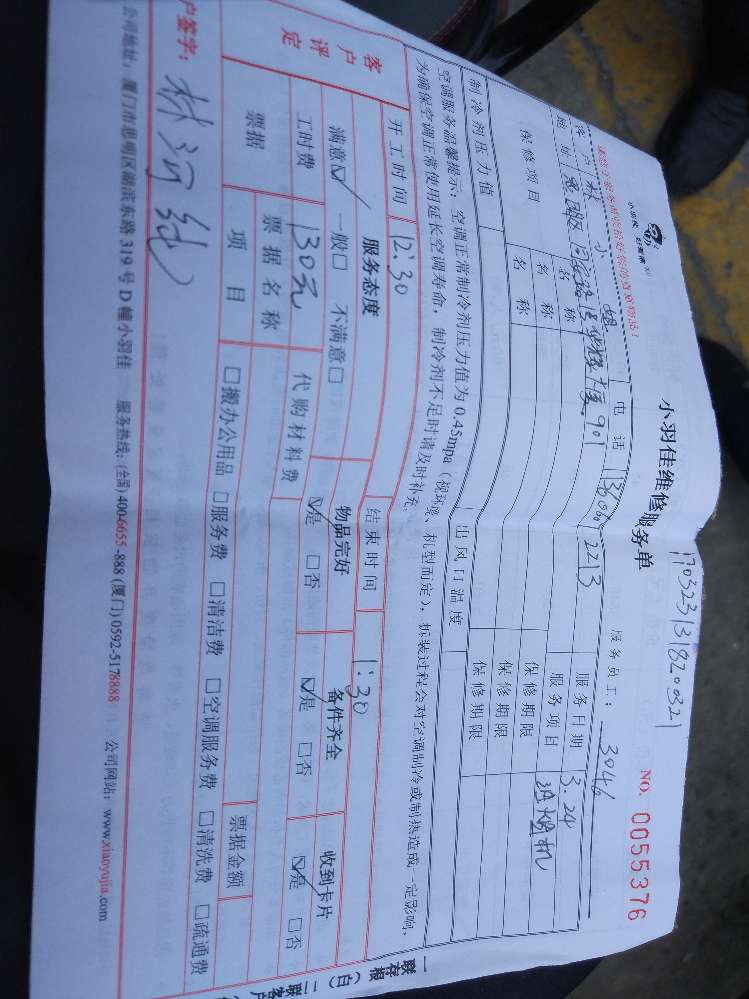 小羽佳维修服务单
1703231318200321
NO. 0055376
服务员工： 3046
客户 林小姐 电话 服务日期 3.24
地址 901 服务项目
保修项目 名称 保修期限
名称 保修期限
名称 保修期限
制冷剂压力值 出风口温度
空调服务温馨提示：空调正常制冷剂压力值为0.45mpa（视环境、机型而定），拆装过程会对空调制冷或制热造成一定影响，
为确保空调正常使用延长空调寿命，制冷剂不足时请及时补充。
开工时间 12:30 结束时间 1:30
客户评定 服务态度 物品完好 备件齐全 收到卡片
满意☑ 一般□ 不满意□ ☑是 □否 ☑是 □否 ☑是 □否
工时费 130元 代购材料费
票据 票据名称 票据金额
项目 □搬办公用品 □服务费 □清洁费 □空调服务费 □清洗费 □疏通费
户签字：
公司地址：厦门市思明区湖滨东路319号D幢小羽佳 服务热线：(全国)400-6655-888 (厦门)0592-5178888 公司网站：www.xiaoyujia.com
一联存根（白）二联客户